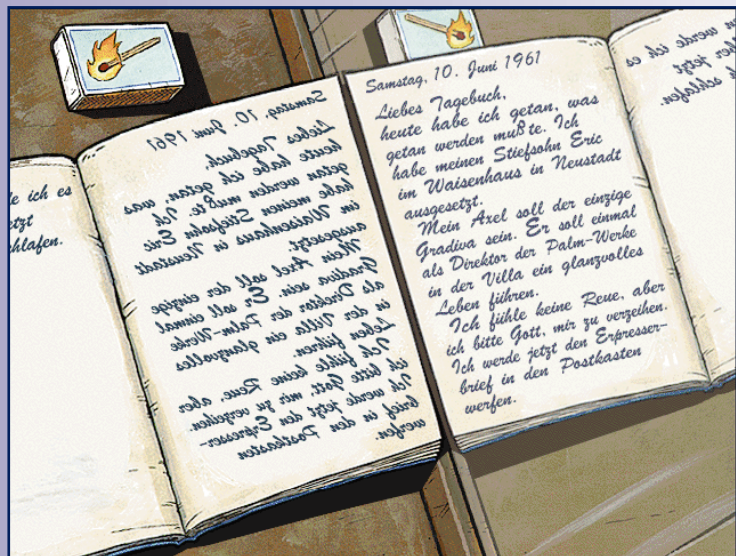 de ich es
etzt
chlafen.
Samstag, 10. Juni 1961
Liebes Tagebuch,
heute habe ich getan, was
getan werden mußte. Ich
habe meinen Stiefsohn Eric
im Waisenhaus in Neustadt
ausgesetzt.
Mein Axel soll der einzige
Gradiva sein. Er soll einmal
als Direktor der Palm-Werke
in der Villa ein glanzvolles
Leben führen.
Ich fühle keine Reue, aber
ich bitte Gott, mir zu verzeihen.
Ich werde jetzt den Erpresser-
brief in den Postkasten
werfen.
Samstag, 10. Juni 1961
Liebes Tagebuch,
heute habe ich getan, was
getan werden mußte. Ich
habe meinen Stiefsohn Eric
im Waisenhaus in Neustadt
ausgesetzt.
Mein Axel soll der einzige
Gradiva sein. Er soll einmal
als Direktor der Palm-Werke
in der Villa ein glanzvolles
Leben führen.
Ich fühle keine Reue, aber
ich bitte Gott, mir zu verzeihen.
Ich werde jetzt den Erpresser-
brief in den Postkasten
werfen.
n werde ich es
ber jetzt
ch schlafen.